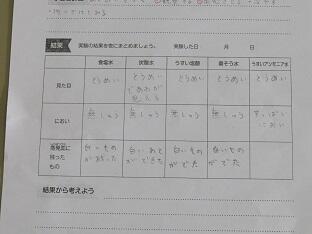 結果 実験の結果を表にまとめましょう。 実験した日 月 日
食塩水 炭酸水 うすい塩酸 重そう水 うすいアンモニア水
見た目 とうめい とうめい とうめい とうめい とうめい
であわが
見える
におい 無しゅう 無しゅう 無しゅう 無しゅう
におい
蒸発皿に
残った
もの
白いもの
が残った
白いあと
ができた
白いもの
ができた
白いもの
ができた
結果から考えよう